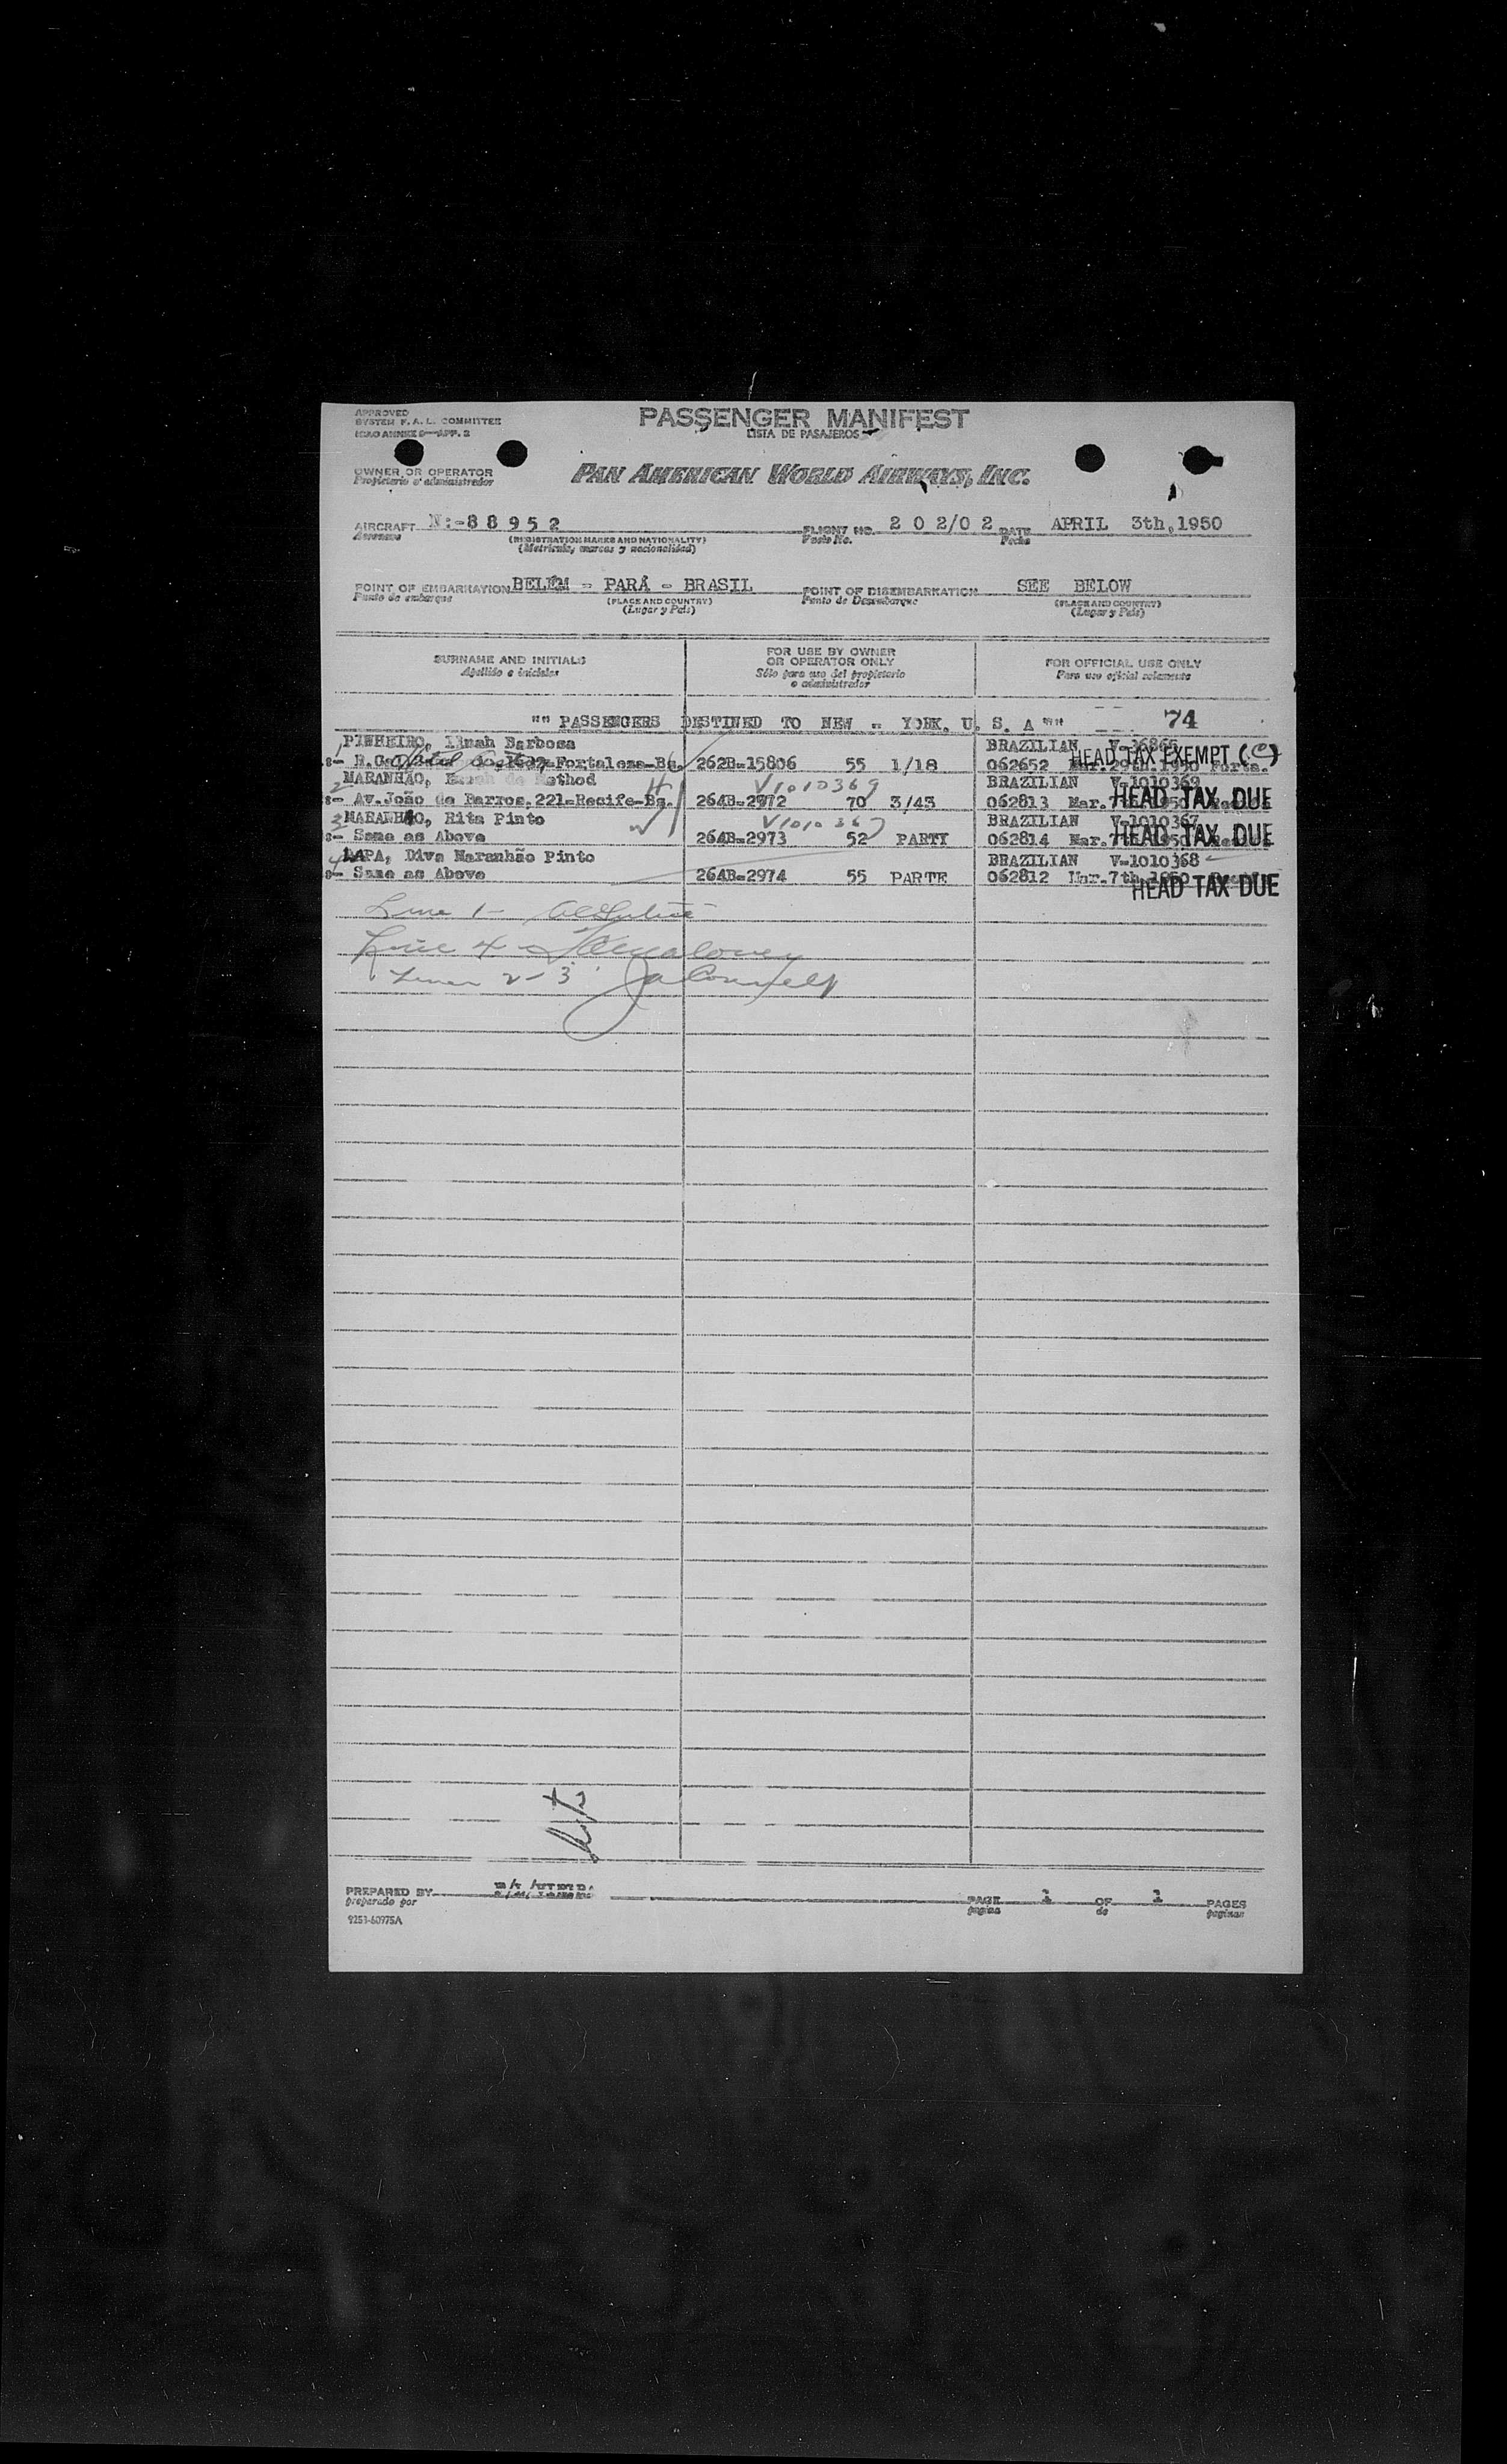 APPROVED
SYSTEM F. A. L. COMMITTEE
ICAO ANNEX 9—APP. 2
PASSENGER MANIFEST
LISTA DE PASAJEROS
OWNER OR OPERATOR
Propietario o administrador
PAN AMERICAN WORLD AIRWAYS, INC.
AIRCRAFT N:-88952 FLIGHT NO. 202/02 DATE APRIL 3th,1950
Aeronave (REGISTRATION MARKS AND NATIONALITY) Vuelo No. Fecha
(Matrícula, marcas y nacionalidad)
POINT OF EMBARKATION BELÉM - PARÁ - BRASIL POINT OF DISEMBARKATION SEE BELOW
Punto de embarque (PLACE AND COUNTRY) Punto de Desembarque (PLACE AND COUNTRY)
(Lugar y País) (Lugar y País)
SURNAME AND INITIALS FOR USE BY OWNER OR OPERATOR ONLY FOR OFFICIAL USE ONLY
Apellido e iniciales Sólo para uso del propietario o administrador Para uso oficial solamente
"" PASSENGERS DESTINED TO NEW - YORK, U. S. A "" 74
1 PINHEIRO, Barbosa BRAZILIAN
Fortaleza-Bs. 262B-15806 55 1/18 062652 Mar.29th.1950 Forta. HEAD TAX EXEMPT (C)
2 MARANHÃO, Method V1010369 BRAZILIAN V-1010369
Av.João de Barros,221-Recife-Bs. 264B-2972 70 3/43 062813 Mar.7th HEAD TAX DUE
3 MARANHÃO, Rita Pinto V1010367 BRAZILIAN V-1010367
Same as Above 264B-2973 52 PARTY 062814 Mar.7th HEAD TAX DUE
4 LAPA, Diva Maranhão Pinto BRAZILIAN V-1010368
Same as Above 264B-2974 55 PARTE 062812 Mar.7th 1950 HEAD TAX DUE
Line 1-
Line 4 -
Lines 2-3
PREPARED BY PAGE 1 OF 1 PAGES
preparado por pagina de paginas
9251-60975A